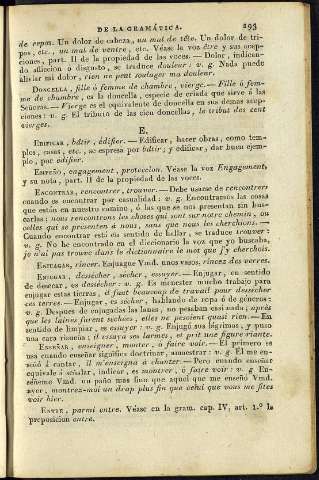 DE LA GRAMÁTICA. 293
de repos. Un dolor de cabeza, un mal de tête. Un dolor de tri-
pas, etc., un mal de ventre, etc. Véase la voz être y sus acep-
ciones, part. II de la propiedad de las voces. — Dolor, indican-
do afliccion ó disgusto, se traduce douleur: v. g. Nada puede
aliviar mi dolor, rien ne peut soulager ma douleur.
DONCELLA, fille ó femme de chambre, vierge. — Fille ó fem-
me de chambre, es la doncella, especie de criada que sirve á las
Señoras. — Vierge es el equivalente de doncella en sus demas acep-
ciones: v. g. El tributo de las cien doncellas, le tribut des cent
vierges.
E.
EDIFICAR, bâtir, édifier. — Edificar, hacer obras, como tem-
plos, casas, etc., se espresa por bâtir; y edificar, dar buen ejem-
plo, por édifier.
EMPEÑO, engagement, protection. Véase la voz Engagement,
y su nota, part. II de la propiedad de las voces.
ENCONTRAR, rencontrer, trouver. — Debe usarse de rencontrer
cuando es encontrar por casualidad: v. g. Encontramos las cosas
que están en nuestro camino, ó las que se nos presentan sin bus-
carlas; nous rencontrons les choses qui sont sur notre chemin, ou
celles qui se présentent à nous, sans que nous les cherchions. —
Cuando encontrar está en sentido de hallar, se traduce trouver:
v. g. No he encontrado en el diccionario la voz que yo buscaba,
je n'ai pas trouvé dans le dictionnaire le mot que j'y cherchois.
ENJUAGAR, rincer. Enjuague Vmd. unos vasos, rincez des verres.
ENJUGAR, dessécher, sécher, essuyer. — Enjugar, en sentido
de desecar, es dessécher: v. g. Es menester mucho trabajo para
enjugar estas tierras, il faut beaucoup de travail pour dessécher
ces terres. — Enjugar, es sécher, hablando de ropa ó de géneros:
v. g. Despues de enjugadas las lanas, no pesaban casi nada, après
que les laines furent séchées, elles ne pesoient quasi rien. — En
sentido de limpiar, es essuyer: v. g. Enjugó sus lágrimas, y puso
una cara risueña, il essuya ses larmes, et prit une figure riante.
ENSEÑAR, enseigner, montrer, ó faire voir. — El primero se
usa cuando enseñar significa doctrinar, amaestrar: v. g. El me en-
señó á cantar, il m'enseigna à chanter. — Pero cuando enseñar
equivale á señalar, indicar, es montrer, ó faire voir: v. g. En-
séñeme Vmd. un paño mas fino que aquel que me enseñó Vmd.
ayer, montrez-moi un drap plus fin que celui que vous me fîtes
voir hier.
ENTRE, parmi entre. Véase en la gram. cap. IV, art. 1.º la
preposicion entre.